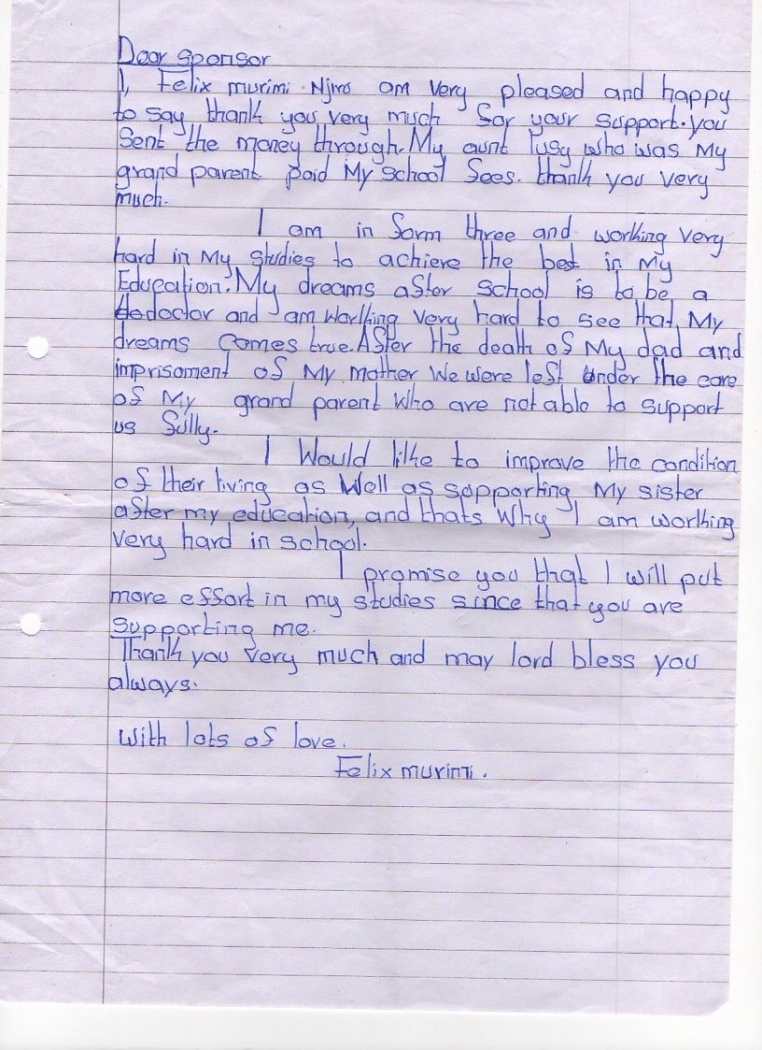 Dear sponsor
I, Felix murimi Njiro am very pleased and happy
to say thank you very much for your support. you
Sent the money through. My aunt lusy who was My
grand parent paid My school fees. thank you very
much.
I am in form three and working very
hard in My studies to achieve the best in My
Education. My dreams after school is to be a
dodoctor and I am working very hard to see that My
dreams comes true. After the death of My dad and
imprisoment of My mother We were left under the care
of My grand parent Who are not able to support
us fully.
I Would like to improve the condition
of their living as Well as sopporting My sister
after my education, and thats Why I am working
very hard in school.
I promise you that I will put
more effort in my studies since that you are
supporting me.
Thank you very much and may lord bless you
always.
With lots of love.
Felix murimi.